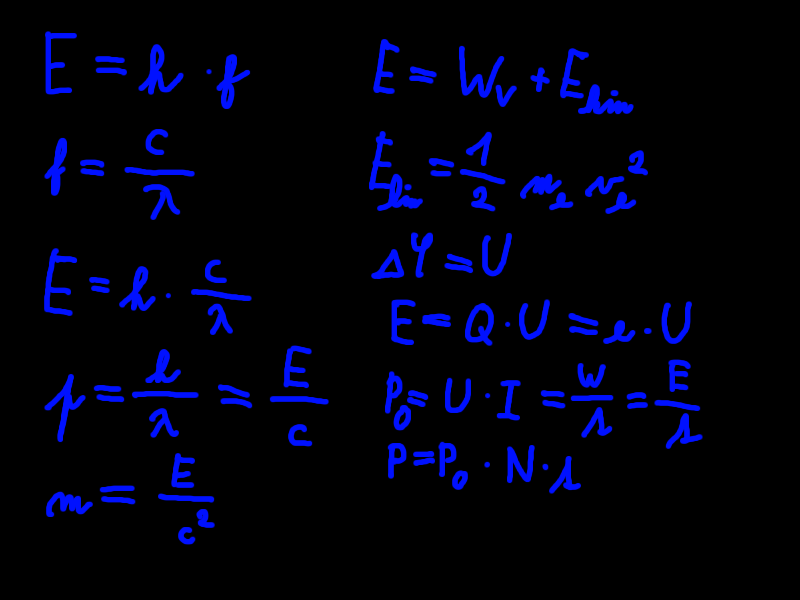 E = h · f
f = c/λ
E = h · c/λ
p = h/λ = E/c
m = E/c²
E = W_v + E_kin
E_kin = 1/2 m_e v_e²
Δφ = U
E = Q · U = e · U
P_0 = U · I = W/s = E/s
P = P_0 · N · s